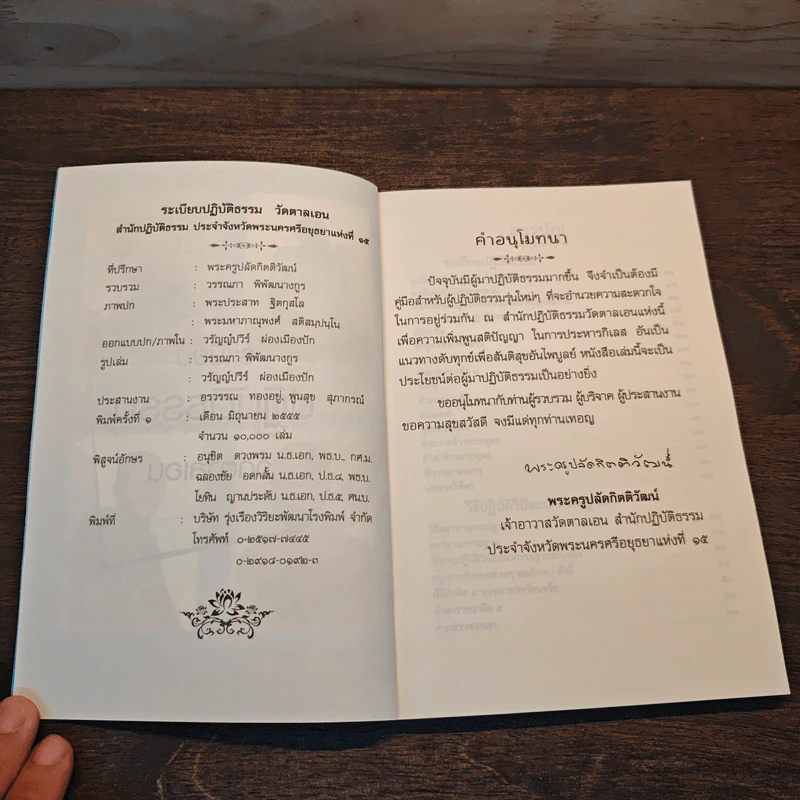 ระเบียบปฏิบัติธรรม วัดตาลเอน
สำนักปฏิบัติธรรม ประจำจังหวัดพระนครศรีอยุธยาแห่งที่ ๑๕
ที่ปรึกษา : พระครูปลัดกิตติวัฒน์
รวบรวม : วรรณภา พิพัฒนางกูร
ภาพปก : พระประสาท ฐิตกุสโล
พระมหาภาณุพงศ์ สติสมฺปนฺโน
ออกแบบปก/ภาพใน : วรัญญ์ปวีร์ ผ่องเมืองปัก
รูปเล่ม : วรรณภา พิพัฒนางกูร
: วรัญญ์ปวีร์ ผ่องเมืองปัก
ประสานงาน : อรวรรณ ทองอยู่, พูนสุข สุภากรณ์
พิมพ์ครั้งที่ ๑ : เดือน มิถุนายน ๒๕๕๕
จำนวน ๑๐,๐๐๐ เล่ม
พิสูจน์อักษร : อนุชิต ดวงพรม น.ธ.เอก, พธ.บ., กศ.ม.
ฉลองชัย อดกลั้น น.ธ.เอก, ป.ธ.๘, พธ.บ.
โยทิน ญานประดับ น.ธ.เอก, ป.ธ.๕ ศนบ.
พิมพ์ที่ : บริษัท รุ่งเรืองวิริยะพัฒนาโรงพิมพ์ จำกัด
โทรศัพท์ ๐-๒๕๑๗-๗๔๔๕
๐-๒๙๑๘-๐๑๙๒-๓
คำอนุโมทนา
ปัจจุบันมีผู้มาปฏิบัติธรรมมากขึ้น จึงจำเป็นต้องมี
คู่มือสำหรับผู้ปฏิบัติธรรมรุ่นใหม่ๆ ที่จะอำนวยความสะดวกใจ
ในการอยู่ร่วมกัน ณ สำนักปฏิบัติธรรมวัดตาลเอนแห่งนี้
เพื่อความเพิ่มพูนสติปัญญา ในการประหารกิเลส อันเป็น
แนวทางดับทุกข์เพื่อสันติสุขอันไพบูลย์ หนังสือเล่มนี้จะเป็น
ประโยชน์ต่อผู้มาปฏิบัติธรรมเป็นอย่างยิ่ง
ขออนุโมทนากับท่านผู้รวบรวม ผู้บริจาค ผู้ประสานงาน
ขอความสุขสวัสดี จงมีแด่ทุกท่านเทอญ
พระครูปลัดกิตติวัฒน์
พระครูปลัดกิตติวัฒน์
เจ้าอาวาสวัดตาลเอน สำนักปฏิบัติธรรม
ประจำจังหวัดพระนครศรีอยุธยาแห่งที่ ๑๕